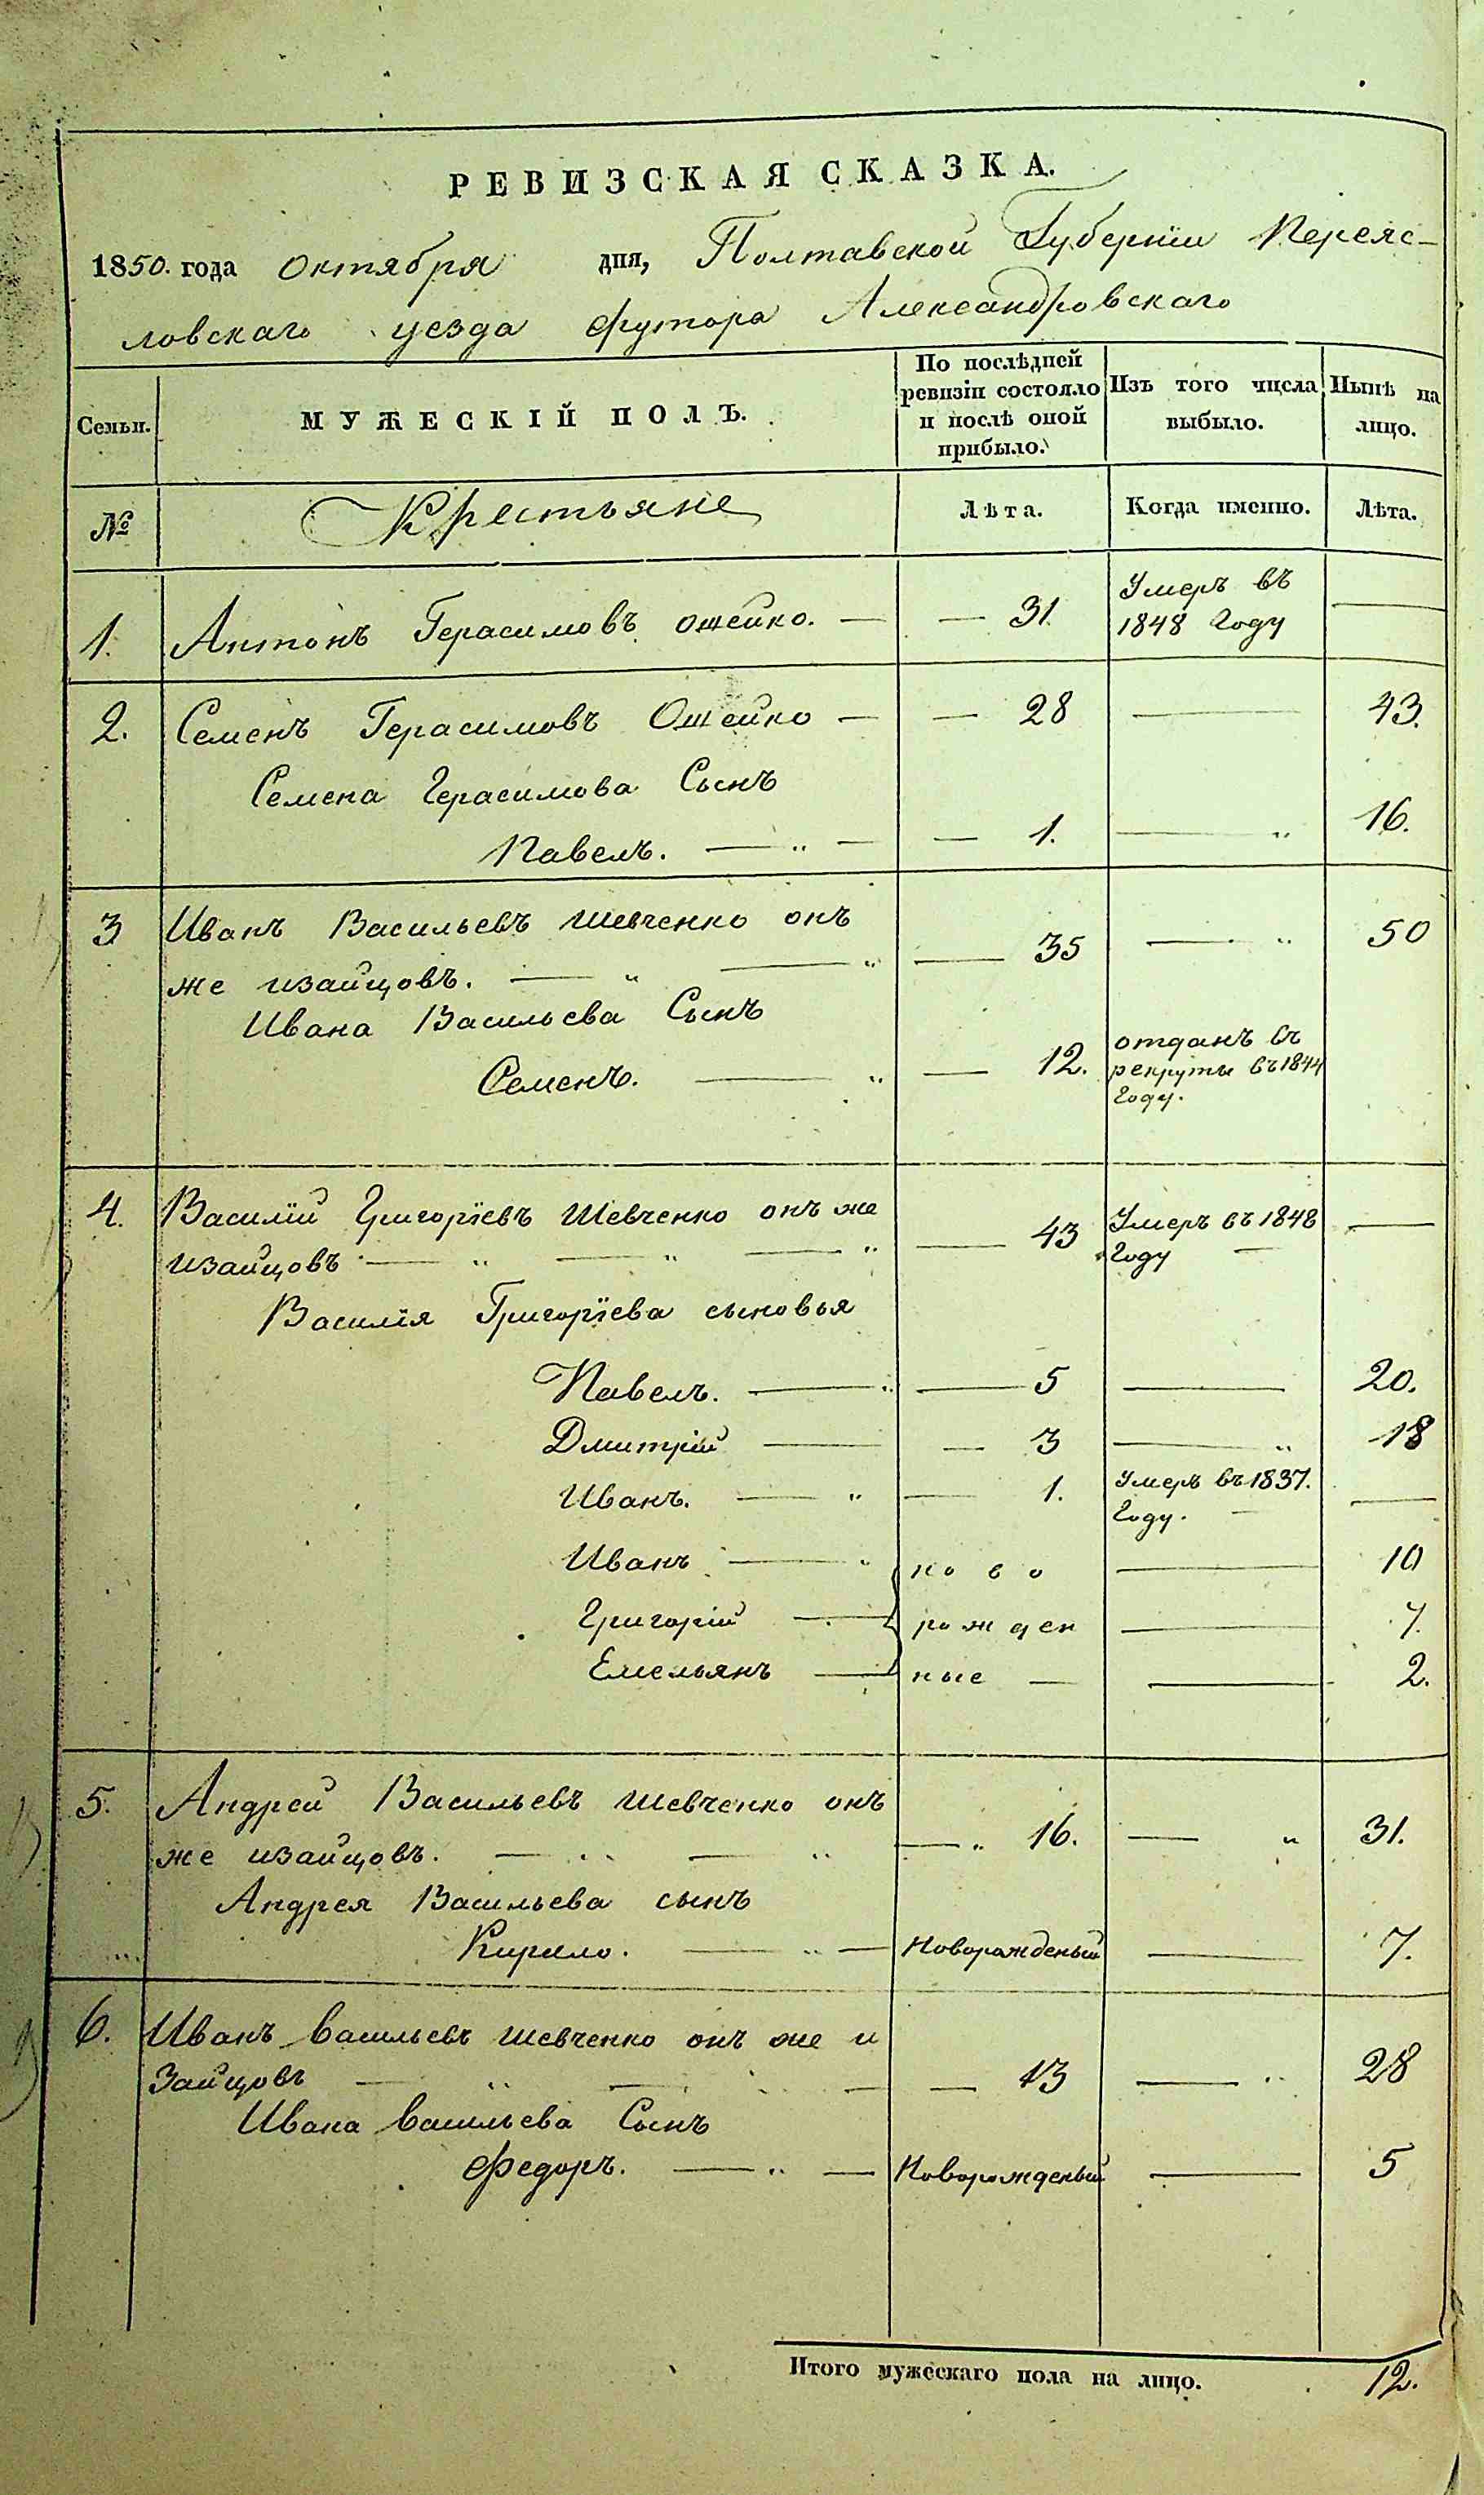 РЕВИЗСКАЯ СКАЗКА.
1850. года Октября дня, Полтавской Губернїи Переяс-
ловскаго уезда футора Александровскаго
Семьи.
МУЖЕСКІЙ ПОЛЪ.
По послѣдней ревизіи состояло и послѣ оной прибыло.
Изъ того числа выбыло.
Нынѣ на лицо.
№
Крестьяне
Лѣта.
Когда именно.
Лѣта.
1. Антонъ Герасимовъ Ошейко. — — 31. Умеръ въ
1848 Году —
2. Семенъ Герасимовъ Ошейко — — 28 — 43.
Семена Герасимова Сынъ
Павелъ. — „ — — 1. — „ 16.
3 Иванъ Васильевъ Шевченко онъ
же изайцовъ. — „ — „ — 35 — „ 50
Ивана Васильева Сынъ
Семенъ. — „ — 12. отданъ въ
рекруты въ 1844
Году.
4. Василїй Григорїевъ Шевченко онъ же
изайцовъ — „ — „ — „ — 43 Умеръ въ 1848
Году — —
Василїя Григорїева сыновья
Павелъ. — „ — 5 — 20.
Дмитрїй — — 3 — „ 18
Иванъ. — „ — 1. Умеръ въ 1837.
Году. — —
Иванъ — „ ново — 10
Григорїй — рожден — 7.
Емельянъ — ные — — 2.
5. Андрей Васильевъ Шевченко онъ
же изайцовъ. — „ — „ — „ 16. — „ 31.
Андрея Васильева сынъ
Кирило. — „ — Новорожденый — 7.
6. Иванъ Васильевъ Шевченко онъ же и
Зайцовъ — „ — — — 13 — „ 28
Ивана Васильева Сынъ
Федоръ. — „ — Новорожденый — 5
Итого мужескаго пола на лицо. 12.